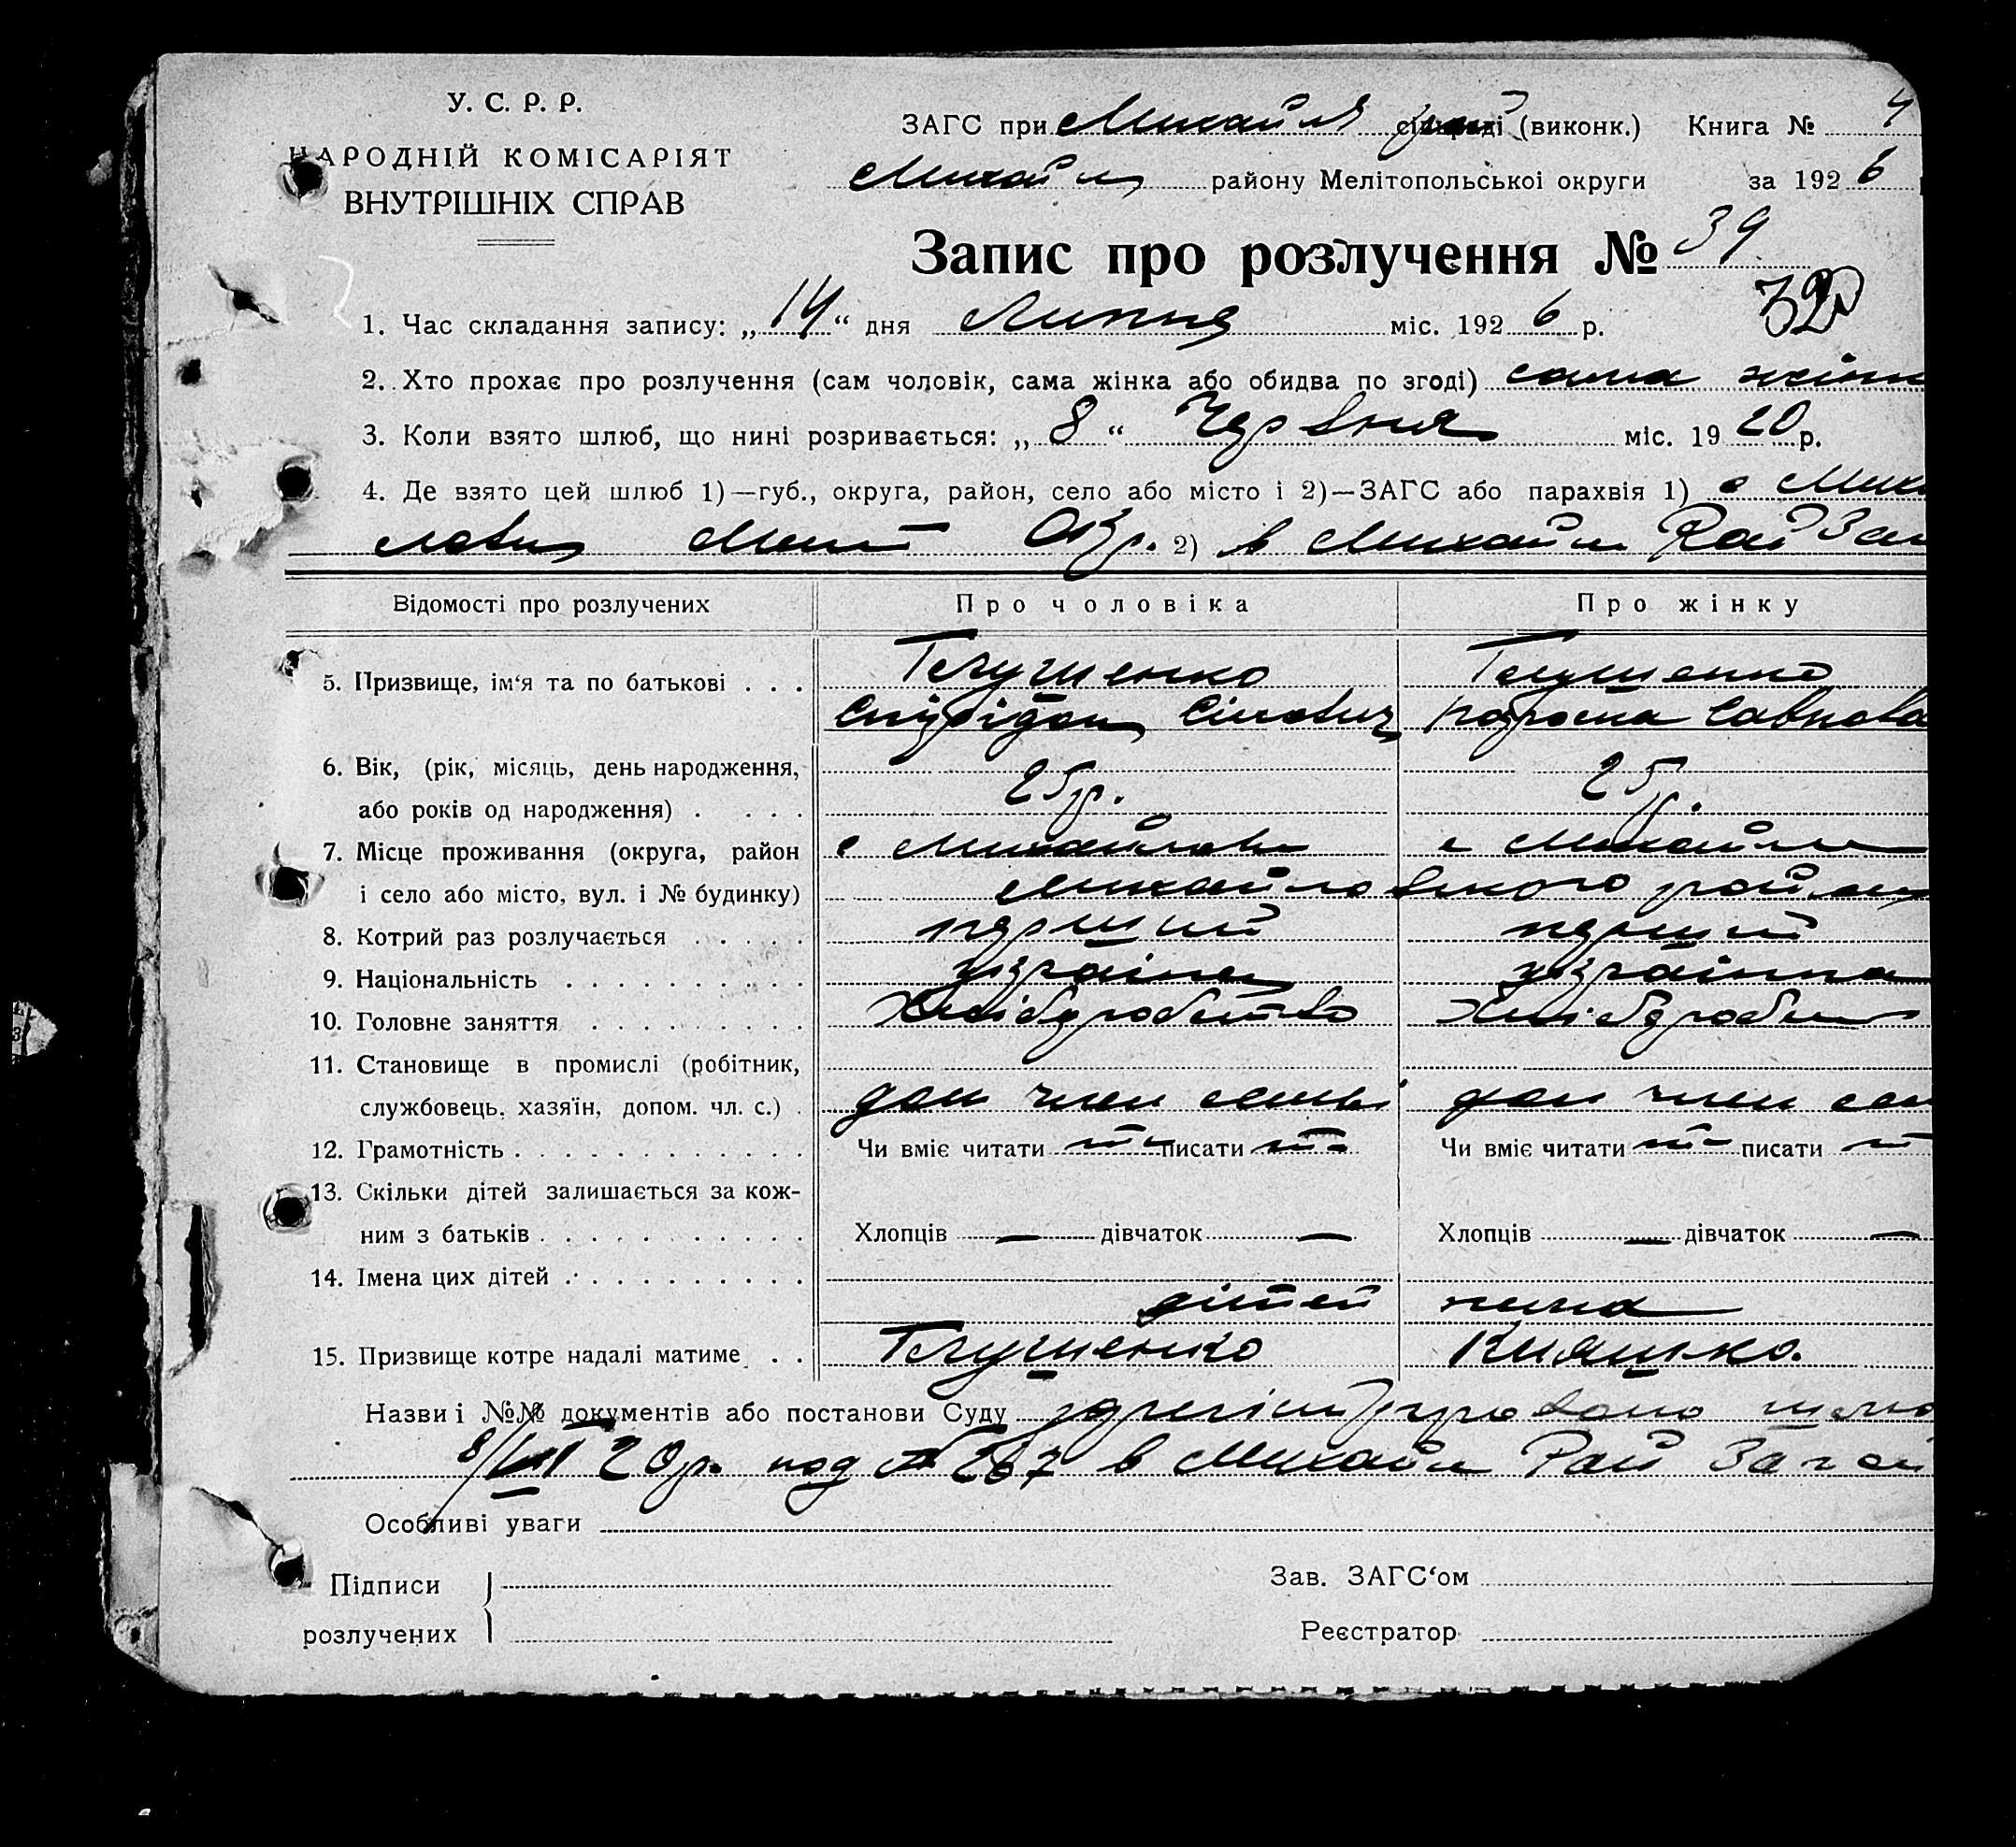 У. С. Р. Р.
НАРОДНІЙ КОМІСАРІЯТ
ВНУТРІШНІХ СПРАВ
ЗАГС при Михайл рай сільраді (виконк.) Книга № 4
Михайл району Мелітопольської округи за 1926
Запис про розлучення № 39
32
1. Час складання запису: „14“ дня Липня міс. 1926 р.
2. Хто прохає про розлучення (сам чоловік, сама жінка або обидва по згоді) сама жінк
3. Коли взято шлюб, що нині розривається: „8“ Червня міс. 1920 р.
4. Де взято цей шлюб 1)—губ., округа, район, село або місто і 2)—ЗАГС або парахвія 1) с Миха
Меліт Окр. 2) в Михайл Рай Заг
Відомості про розлучених Про чоловіка Про жінку
5. Призвище, ім‘я та по батькові . . . Глущенко Глущенко
Спірідон Сілович Савков
6. Вік, (рік, місяць, день народження,
або років од народження) . . . . 25р. 25р.
7. Місце проживання (округа, район с Михайлівк с Михайлів
і село або місто, вул. і № будинку) Михайловського району
8. Котрий раз розлучається . . . . . перший перший
9. Національність . . . . . . . . . . україн українка
10. Головне заняття . . . . . . . . . Хлібдробство Хлібдробст
11. Становище в промислі (робітник,
службовець, хазяїн, допом. чл. с.) . доп член семьі доп член сем
12. Грамотність . . . . . . . . . . . . Чи вміє читати писати Чи вміє читати писати
13. Скільки дітей залишається за кож-
ним з батьків . . . . . . . . . . . Хлопців — дівчаток — Хлопців — дівчаток —
14. Імена цих дітей . . . . . . . . . .
дітей нема
15. Призвище котре надалі матиме . . Глущенко Кияшко.
Назви і №№ документів або постанови Суду зарегістріровано шлю
20р. под № 267 в Михайл Рай Загсі
Особливі уваги
Підписи
розлучених
Зав. ЗАГС‘ом
Реєстратор